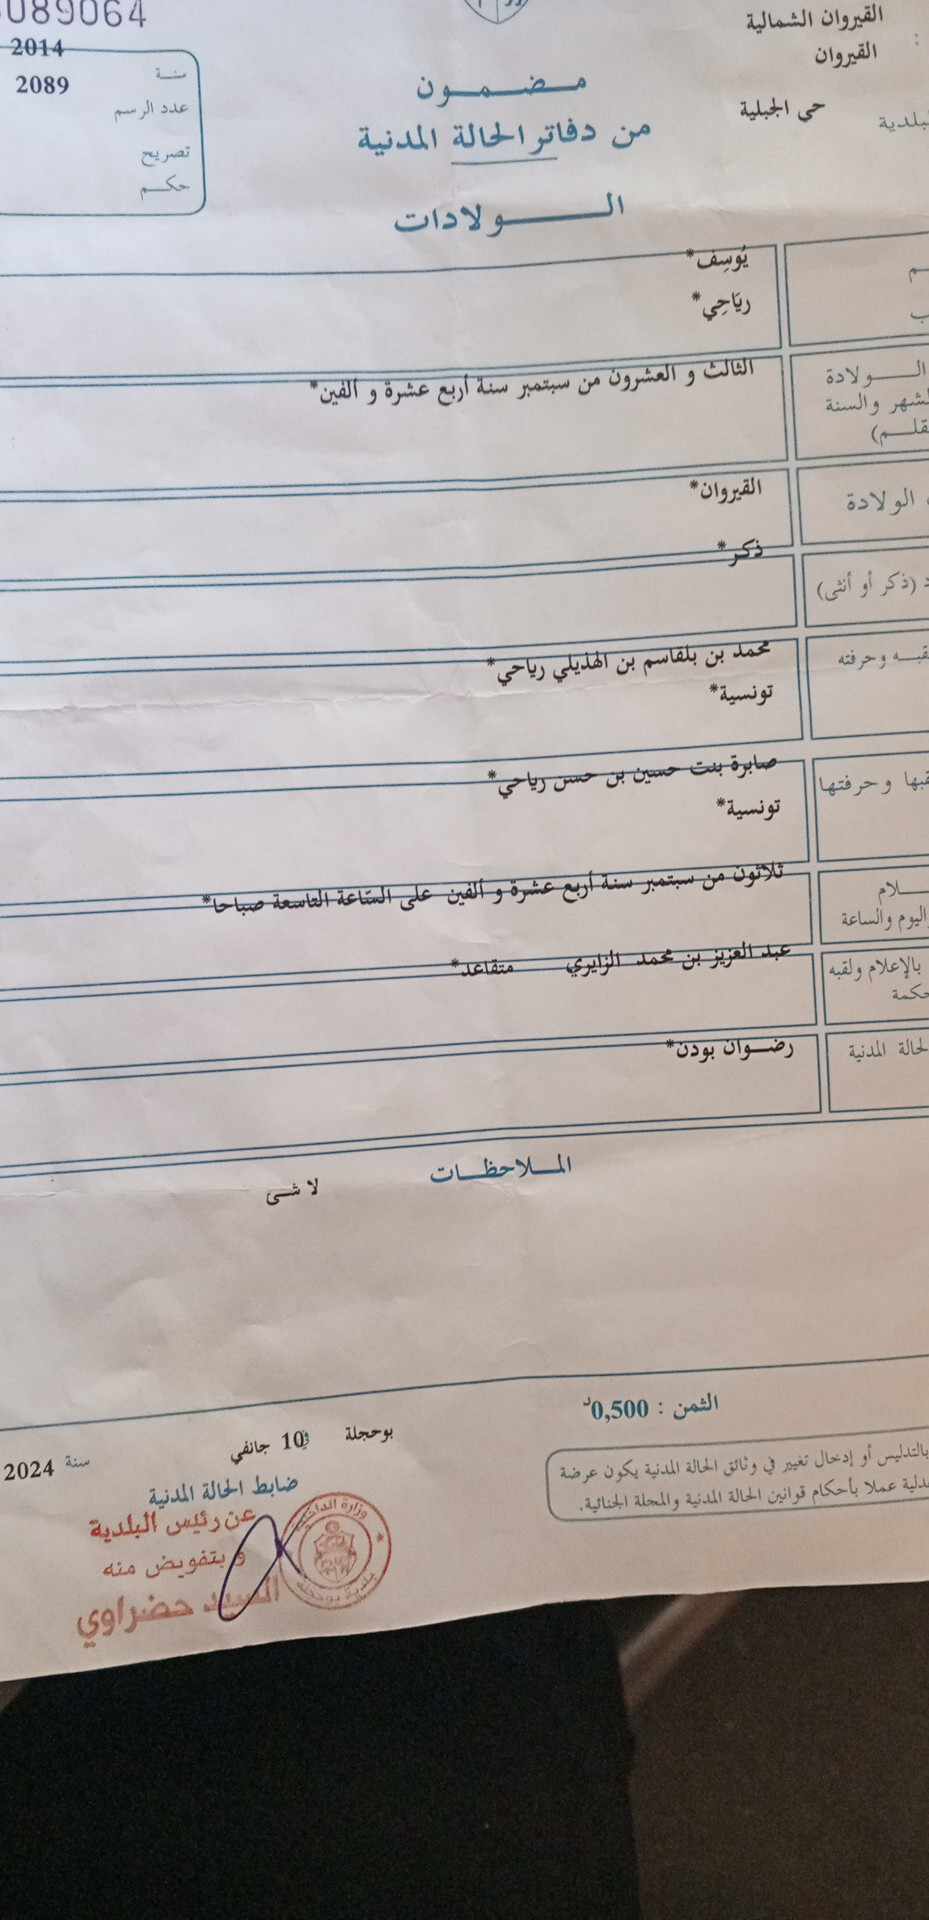 089064
القيروان الشمالية
القيروان
حي الجبلية
2014
سنة
2089
عدد الرسم
تصريح
حكم
مضمون
من دفاتر الحالة المدنية
الولادات
يُوسِف*
ريَاحِي*
الولادة
والسنة
الثالث و العشرون من سبتمبر سنة أربع عشرة و ألفين*
الولادة
القيروان*
(ذكر أو أنثى)
ذكر*
وحرفته
محمد بن بلقاسم بن الهذيلي رياحي*
تونسية*
وحرفتها
صابرة بنت حسين بن حسن رياحي*
تونسية*
واليوم والساعة
ثلاثون من سبتمبر سنة أربع عشرة و ألفين على السّاعة التاسعة صباحا*
بالإعلام ولقبه
عبد العزيز بن محمد الزايري متقاعد*
المدنية
رضوان بودن*
الملاحظات
لا شى
الثمن : 0,500د
بالتدليس أو إدخال تغيير في وثائق الحالة المدنية يكون عرضة
عملا بأحكام قوانين الحالة المدنية والمجلة الجنائية.
بوحجلة في 10 جانفي سنة 2024
ضابط الحالة المدنية
عن رئيس البلدية
و بتفويض منه
السيد حضراوي
وزارة الداخلية
بلدية بوحجلة